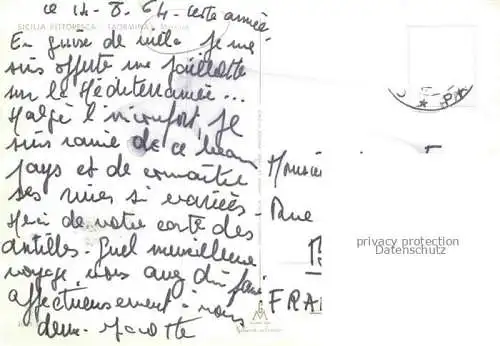 ce 14-8.64 - cette année
SICILIA PITTORESCA TAORMINA
En guise de villa je me
suis offerte une paillotte
sur la Méditerranée...
Malgé l'inconfort, je
suis ravie de ce beau
pays et de connaître
ses rives si variées -
Merci de votre carte des
Antilles - Quel merveilleux
voyage vous avez dû faire
affectueusement à vous
deux - 
Monsieur
Rue
FRAN
privacy protection
Datenschutz